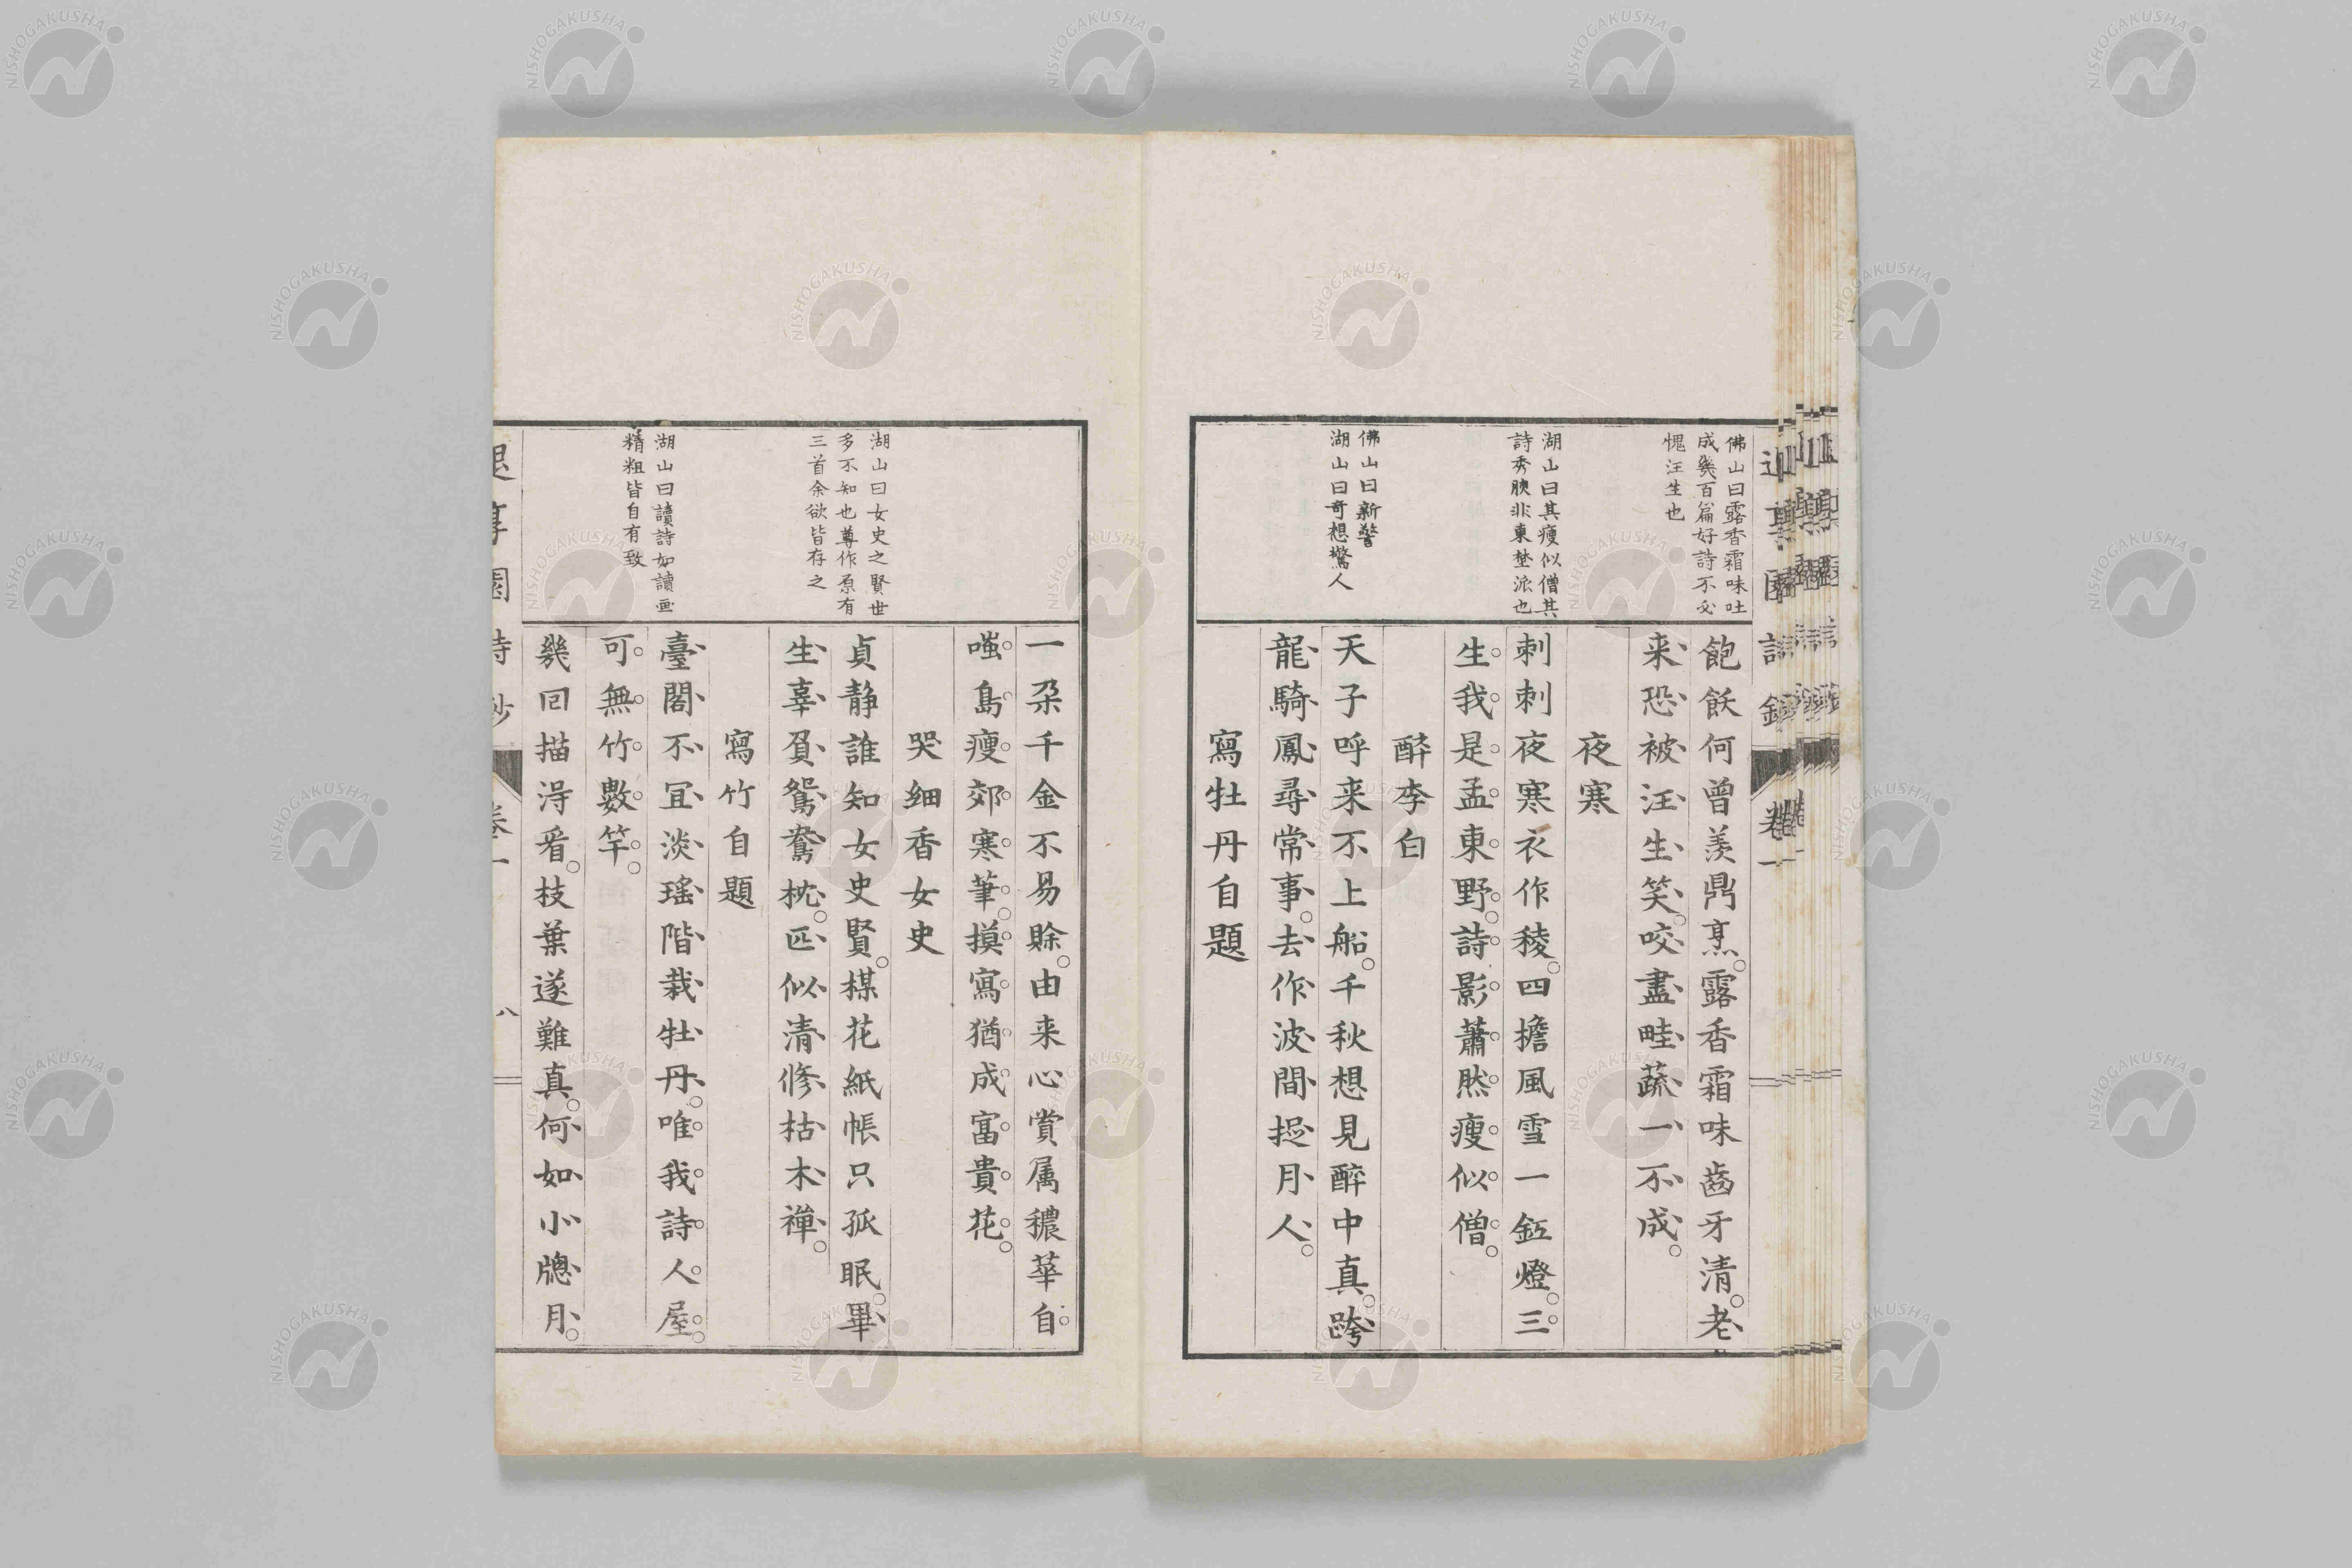 佛山曰露香霜味吐
成幾百篇好詩不必
愧汪生也
湖山曰其瘦似僧其
詩秀腴非東埜派也
佛山曰新警
湖山曰奇想驚人
飽飫何曽羨鼎烹。露香霜味齒牙清。老
来恐被汪生笑。咬盡畦蔬一不成。
夜寒
刺刺夜寒衣作稜。四檐風雪一釭燈。三
生我是孟東野。詩影蕭然瘦似僧。
醉李白
天子呼来不上船。千秋想見醉中真。跨
龍騎鳳尋常事。去作波間捉月人。
寫牡丹自題
湖山曰女史之賢世
多不知也尊作原有
三首余欲皆存之
湖山曰讀詩如讀画
精粗皆自有致
一朶千金不易賒。由来心賞属穠華。自
嗤島瘦郊寒筆。摸寫猶成富貴花。
哭細香女史
貞静誰知女史賢。楳花紙帳只孤眠。畢
生辜負鴛鴦枕。匹似清修枯木禪。
寫竹自題
臺閣不冝淡瑶階栽牡丹。唯我詩人屋。
可無竹數竿。
幾回描淂看。枝葉遂難真。何如小牕月。
詩鈔 卷一
八
NISHOGAKUSHA